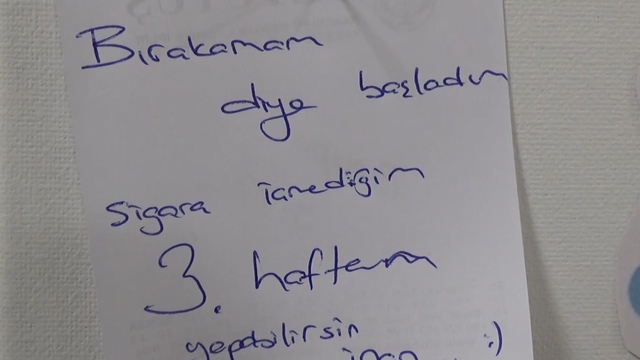 Bırakamam
diye başladım
sigara içmediğim
3. haftam
yapabilirsin
inan :)